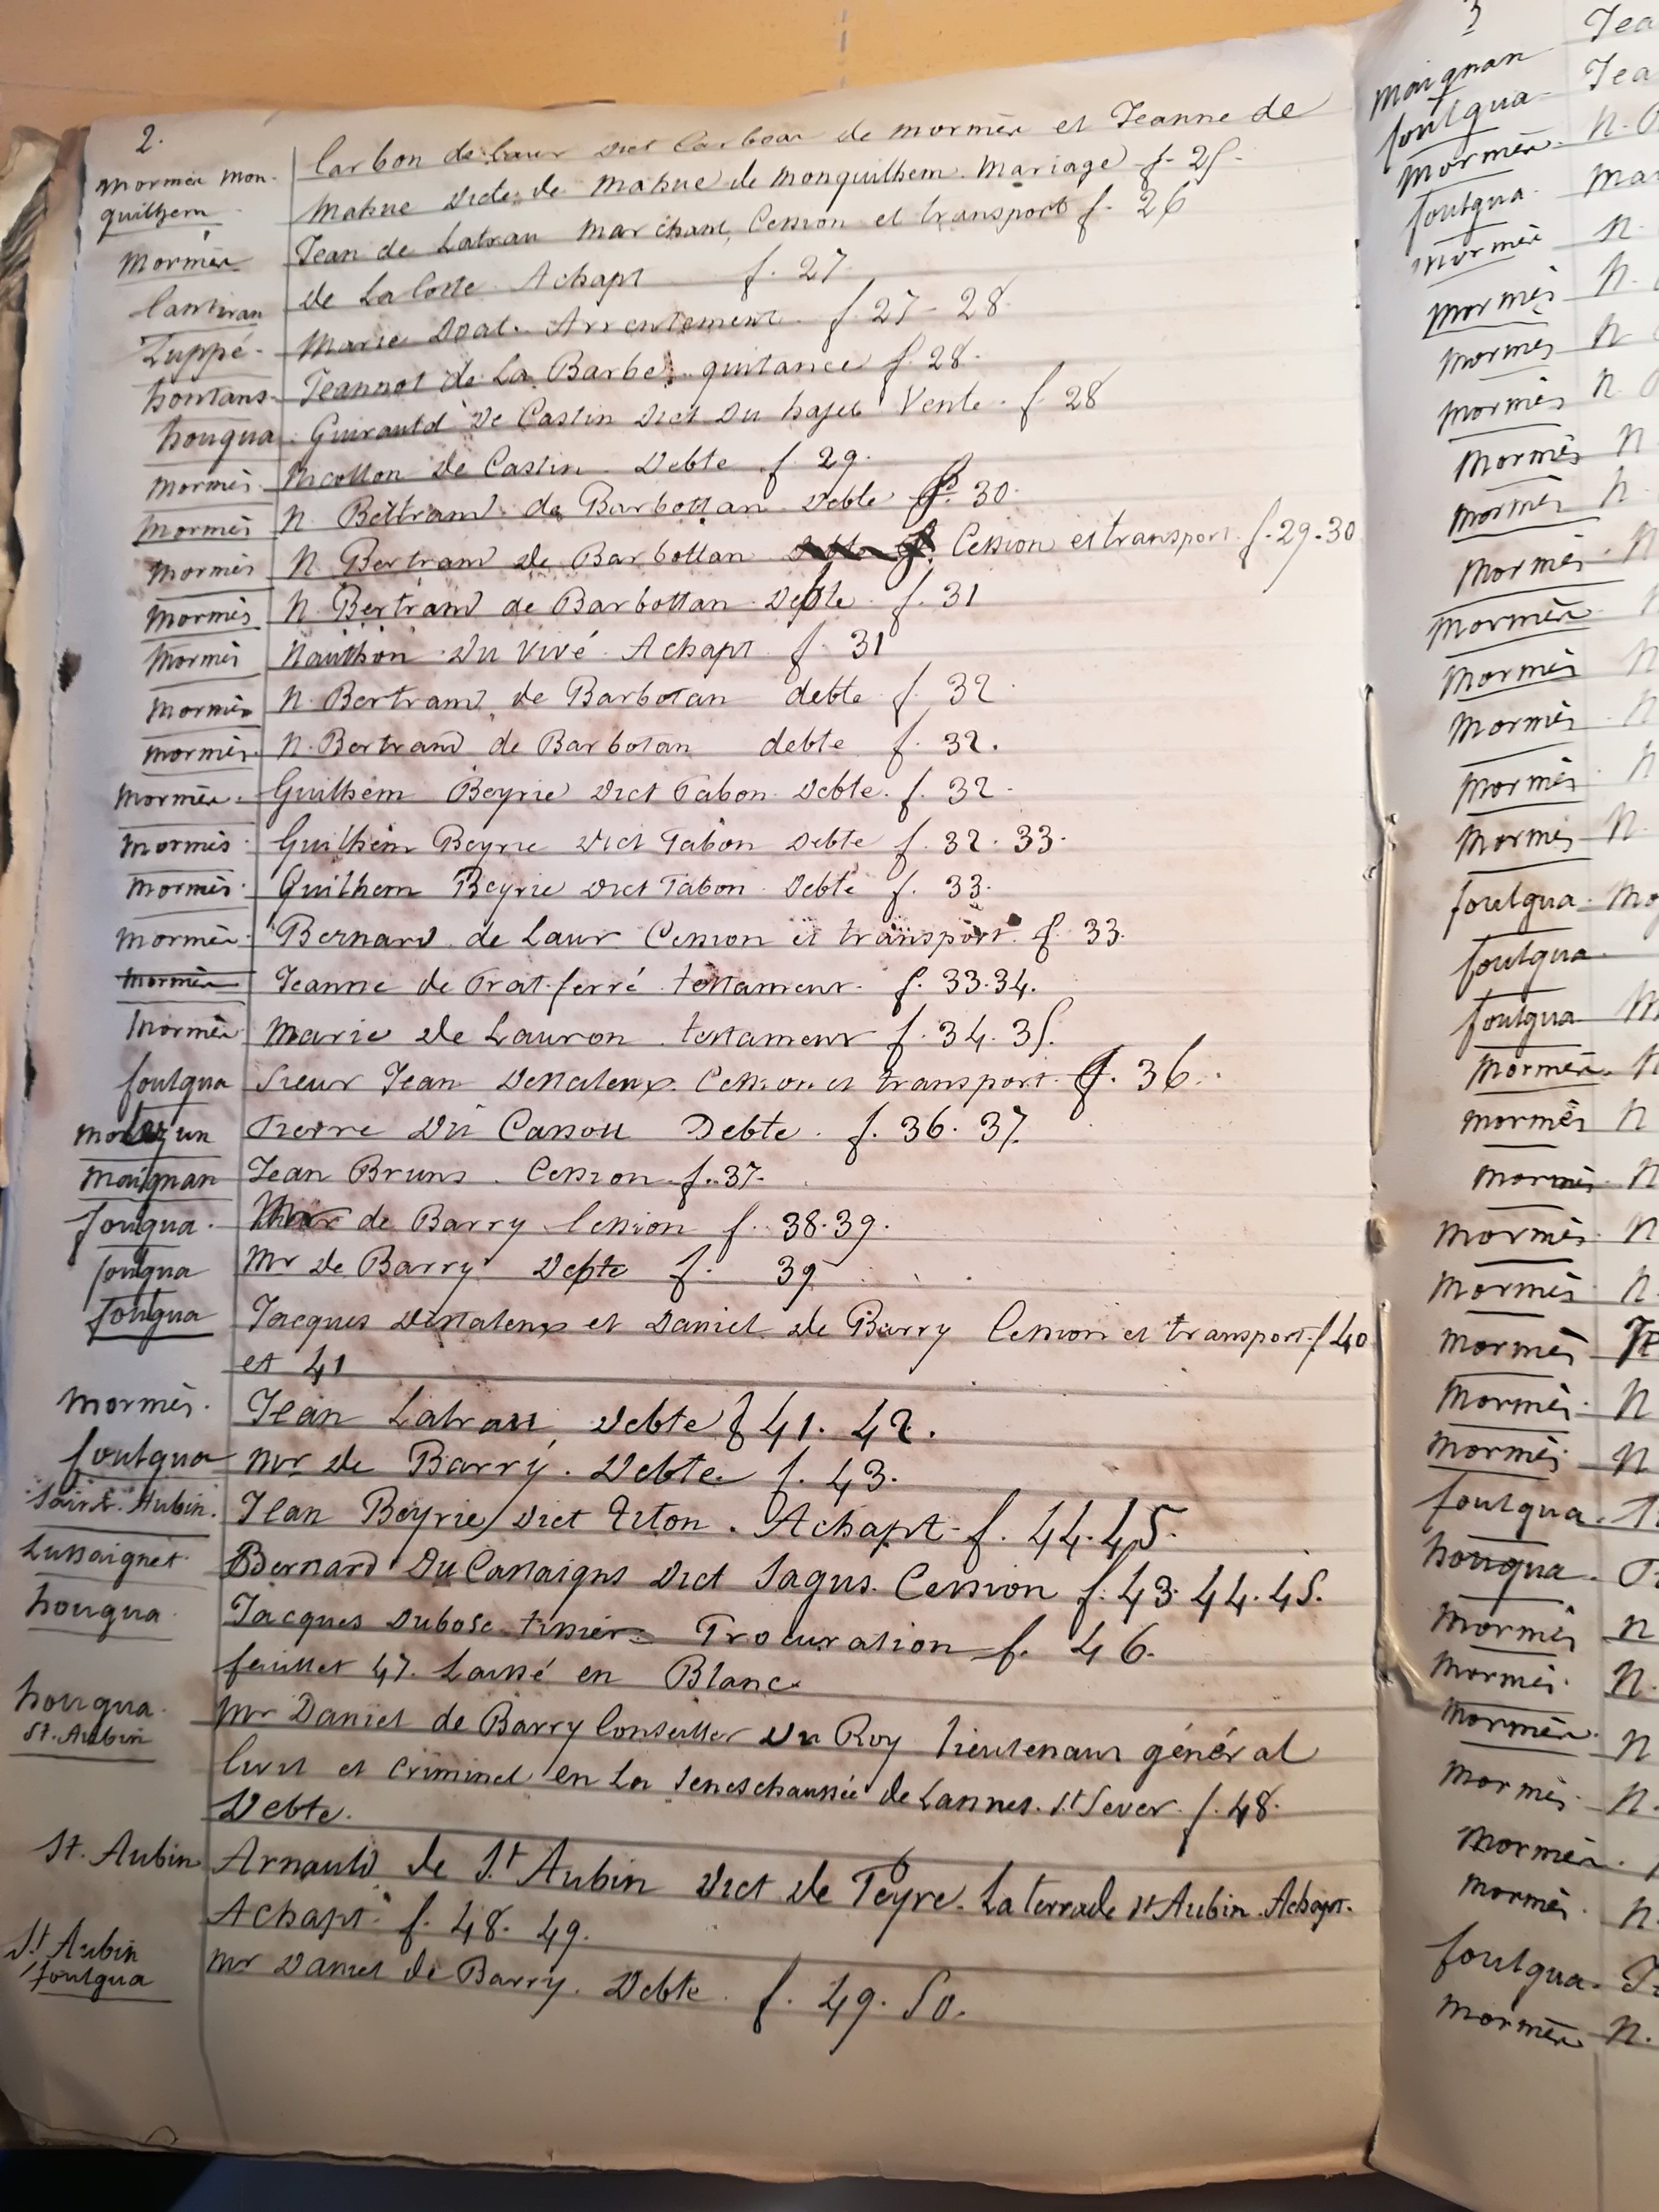 2.
Mormès Mon- Carbon de Laur dict Carbon de Mormès et Jeanne de
guilhem Mahue dicte de Mahue de Monguilhem. Mariage f. 25.
Mormès Jean de Latrau Marchant, Cession et transport f. 26
de La Coste Achapt f. 27
Luppé. Marie Doat. Arrentement. f. 27 - 28
hontans. Jeannot de La Barbe. quitance f. 28.
houqua. Guirautd de Castin dict du hajet Vente. f. 28
Mormès. Nicollon de Castin. Debte f. 29.
Mormès N. Beltrand de Barbottan Debte f. 30.
Mormès N. Bertrand de Barbottan Cession et transport f. 29-30
Mormès N. Bertrand de Barbottan Debte f. 31
Mormès Nauthon du Vivé. Achapt f. 31
Mormès N. Bertrand de Barbotan debte f. 32
Mormès. N. Bertrand de Barbotan debte f. 32.
Mormès. Guilhem Beyrie dict Tabon Debte. f. 32.
Mormès. Guilhem Beyrie dict Tabon Debte f. 32. 33.
Mormès. Guilhem Beyrie dict Tabon. Debte f. 33.
Mormès. Bernard de Laur Cession et transport. f. 33.
Mormès Jeanne de Prat ferré testament. f. 33.34.
Mormès Marie de Lauron. testament f. 34. 35.
foulqua Sieur Jean Destalenx. Cession et transport. f. 36.
Pierre du Cassou Debte. f. 36. 37.
Maignan Jean Bruns. Cession f. 37.
fouqua. de Barry Cession f. 38.39.
fouqua Mr de Barry Debte f. 39
foulqua Jacques Destalenx et Daniel de Barry Cession et transport f 40
et 41
Mormès. Jean Latrau, Debte f 41. 42.
foulqua Mr de Barry. Debte. f. 43.
Saint. Aubin. Jean Beyrie dict Titon. Achapt f. 44.45.
Lussaignet. Bernard du Cassaigns dict Sagus. Cession f. 43. 44. 45.
houqua. Jacques Dubosc tissier Procuration f. 46.
feuillet 47. Laissé en Blanc
houqua. Mr Daniel de Barry Conseiller du Roy lieutenant général
St. Aubin Civil et criminel en La Seneschaussée de Lannes. St Sever. f. 48.
Debte.
St. Aubin Arnauld de St Aubin dict de Peyre. La terrade St Aubin. Achapt.
Achapt f. 48. 49.
St Aubin Mr Daniel de Barry. Debte. f. 49. 50.
foulqua
3
Maignan
foulqua
Mormès.
foulqua.
Mormès N.
Mormès N.
Mormès N
Mormès N.
Mormès N
Mormès N.
Mormès. N
Mormès.
Mormès N
Mormès. N
Mormès N
Mormès N.
foulqua.
foulqua.
foulqua
Mormès. N
Mormès N
Mormès N
Mormès. N
Mormès N.
Mormès
Mormès. N
Mormès. N
foulqua.
houqua.
Mormès N
Mormès. N.
Mormès. N
Mormès. N.
Mormès.
Mormès. N.
foulqua.
Mormès N.